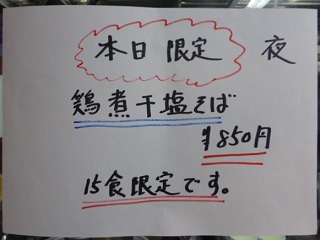 本日 限定 夜
鶏煮干塩そば
¥850円
15食限定です。